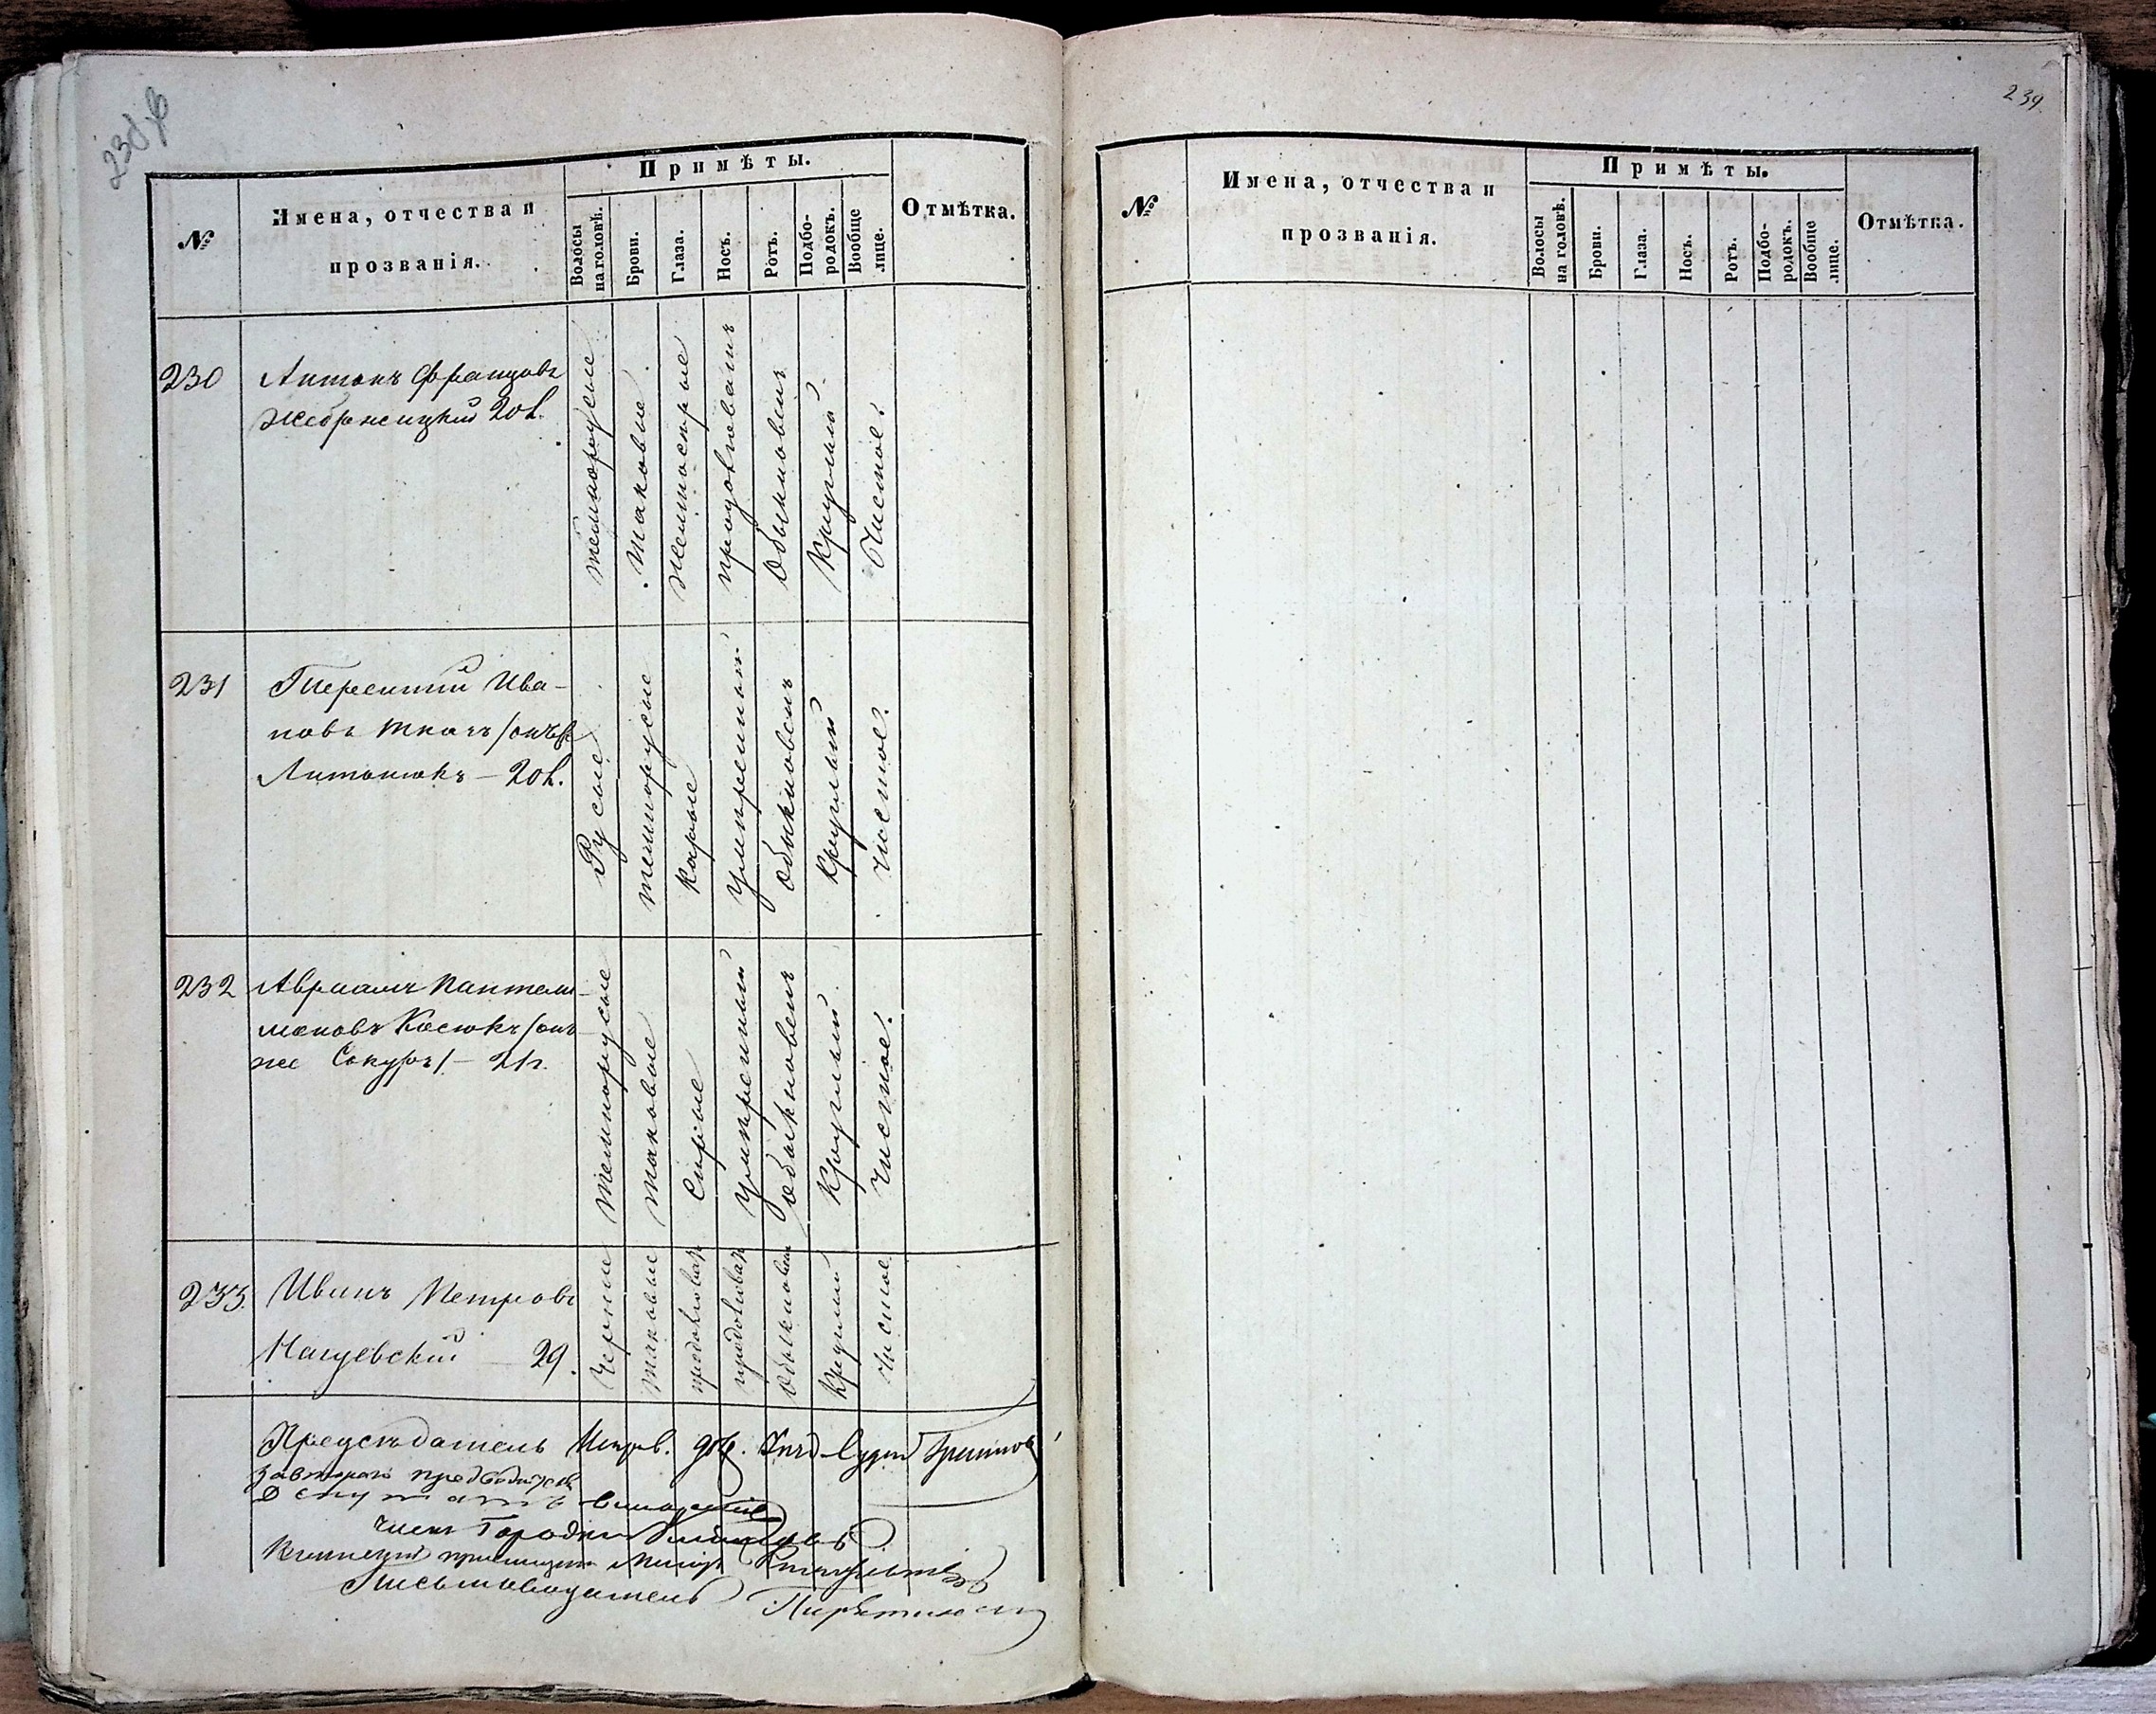 239
№
Имена, отчества и
прозванія.
Примѣты.
Волосы
на головѣ.
Брови.
Глаза.
Носъ.
Ротъ.
Подбо-
родокъ.
Вообще
лице.
Отмѣтка.
230
Антонъ Францовъ
20 л.
темнорусые
таковые
продолговатъ
обыкновенъ
круглый
Чистое.
231
Терентий Ива-
новъ Ткачъ (онъ же
Антонюкъ — 20 л.
Русые
темнорусые
карые
умѣренный
обыкновенъ
круглый
чистое.
232
Авраамъ Пантели-
моновъ Косюкъ (онъ
же Сокуръ) — 21 г.
темнорусые
таковые
Сѣрые
умѣренный
обыкновенъ
круглый
чистое.
233.
Иванъ Петровъ
29.
Черные
таковые
продолговат
обыкновен
круглый
чистое
Предсѣдатель
Депутатъ
Членъ Городни
Письмоводитель
№
Имена, отчества и
прозванія.
Примѣты.
Волосы
на головѣ.
Брови.
Глаза.
Носъ.
Ротъ.
Подбо-
родокъ.
Вообще
лице.
Отмѣтка.